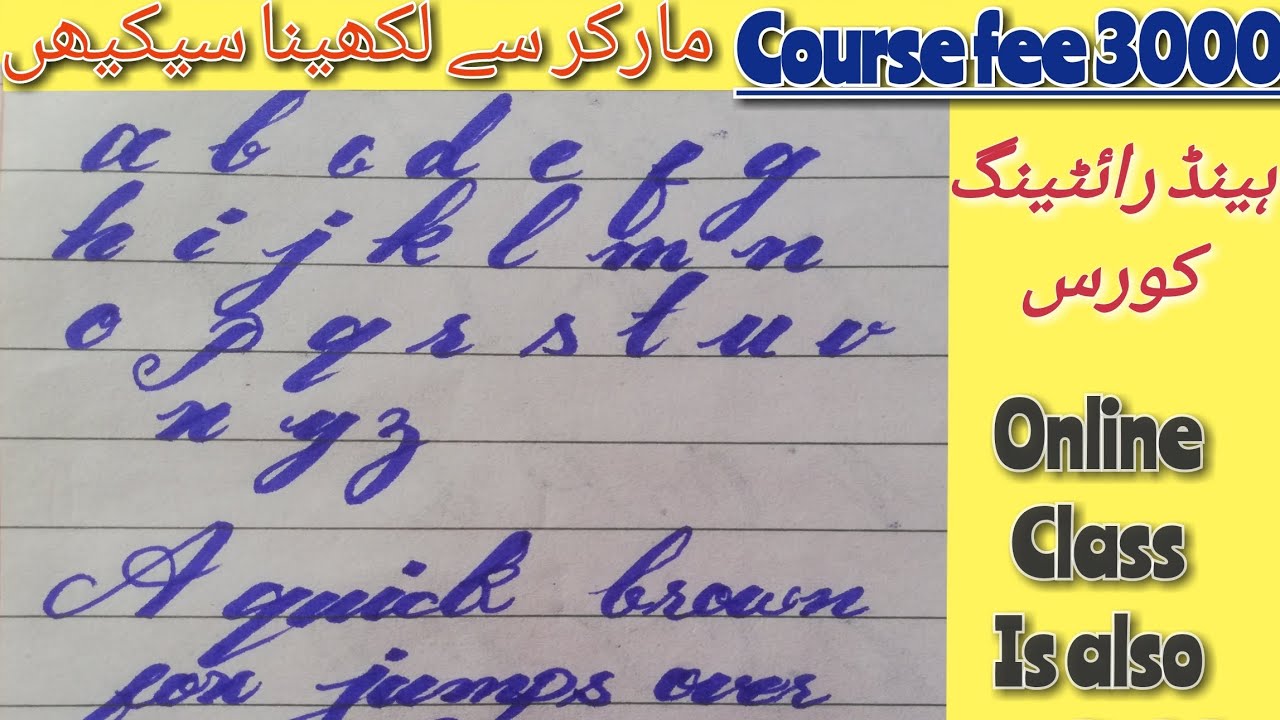 مارکر سے لکھینا سیکیھں
Course fee 3000
a b c d e f g
h i j k l m n
o p q r s t u v
x y z
A quick brown
fox jumps over
ہینڈ رائٹینگ
کورس
Online
Class
Is also